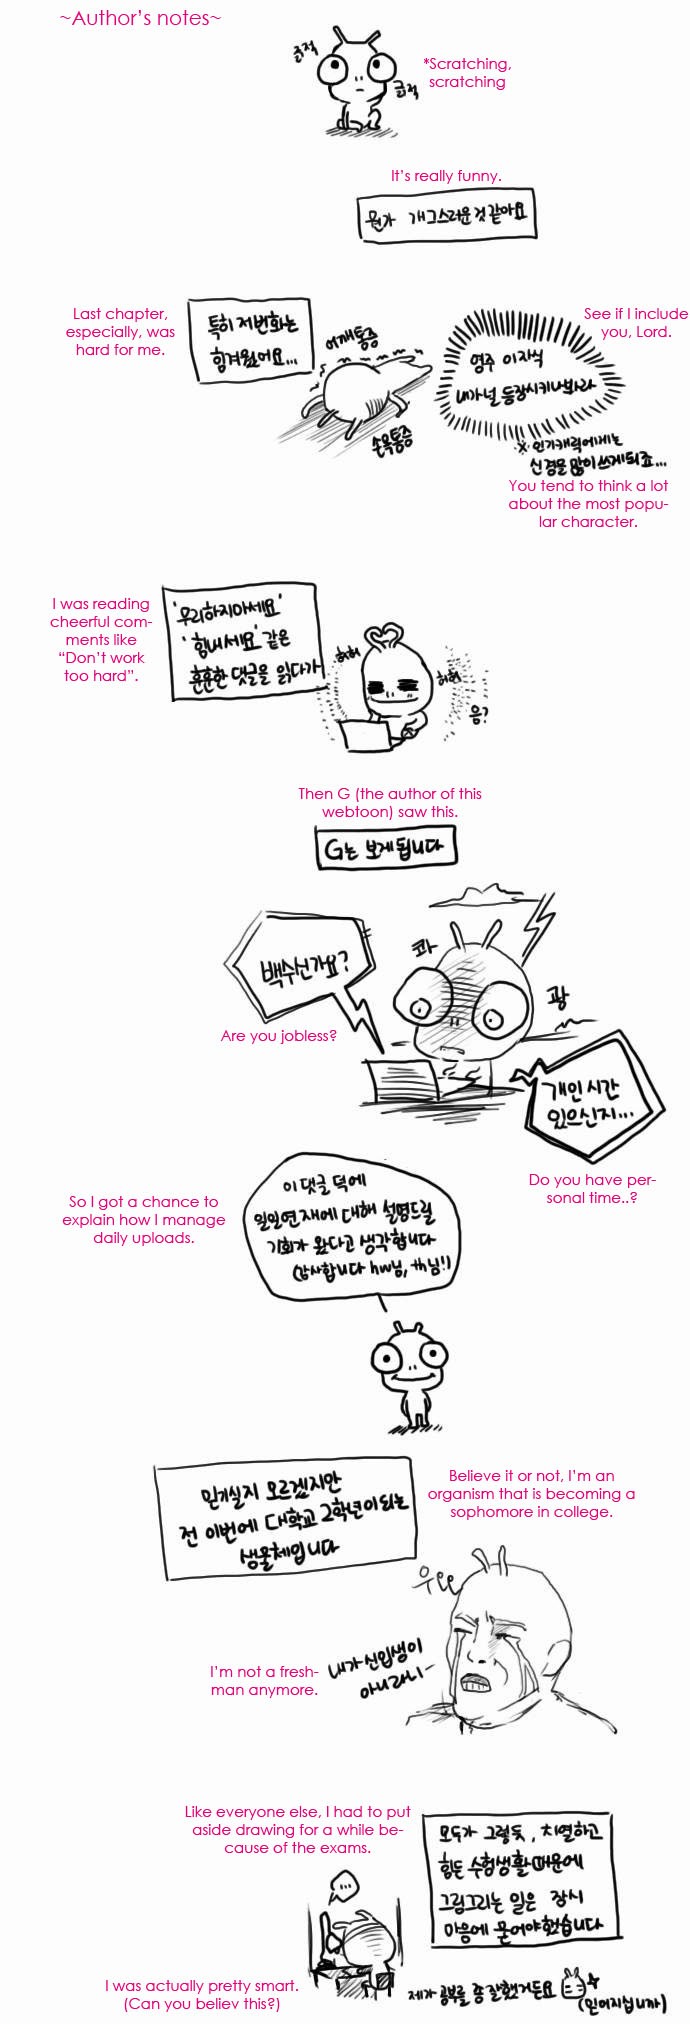 ~Author's notes~
긁적
*Scratching,
scratching
긁적
It's really funny.
뭔가 개그스러운것같아요
Last chapter,
especially, was
hard for me.
특히 저번화는
힘겨웠어요...
어깨통증
손목통증
See if I include
you, Lord.
영주 이자식
내가널 등장시키나봐라
※ 인기캐릭에게는
신경을 많이쓰게되죠...
You tend to think a lot
about the most popu-
lar character.
I was reading
cheerful com-
ments like
“Don't work
too hard”.
'무리하지마세요'
'힘내세요' 같은
훈훈한 댓글을 읽다가
허허
허허
음?
Then G (the author of this
webtoon) saw this.
G는 보게됩니다
백수신가요?
Are you jobless?
콰
광
개인시간
있으신지...
Do you have per-
sonal time..?
So I got a chance to
explain how I manage
daily uploads.
이 댓글 덕에
일일연재에 대해 설명드릴
기회가 왔다고 생각합니다
(감사합니다 hw님, th님!!)
믿기실지 모르겠지만
전 이번에 대학교 2학년이되는
생물체입니다
Believe it or not, I'm an
organism that is becoming a
sophomore in college.
I'm not a fresh-
man anymore.
내가신입생이
아니라니-
Like everyone else, I had to put
aside drawing for a while be-
cause of the exams.
모두가 그렇듯, 치열하고
힘든 수험생활때문에
그림그리는 일은 잠시
마음에 묻어야했습니다
...
I was actually pretty smart.
(Can you believ this?)
제가 공부를 좀 잘했거든요
(믿어지십니까)